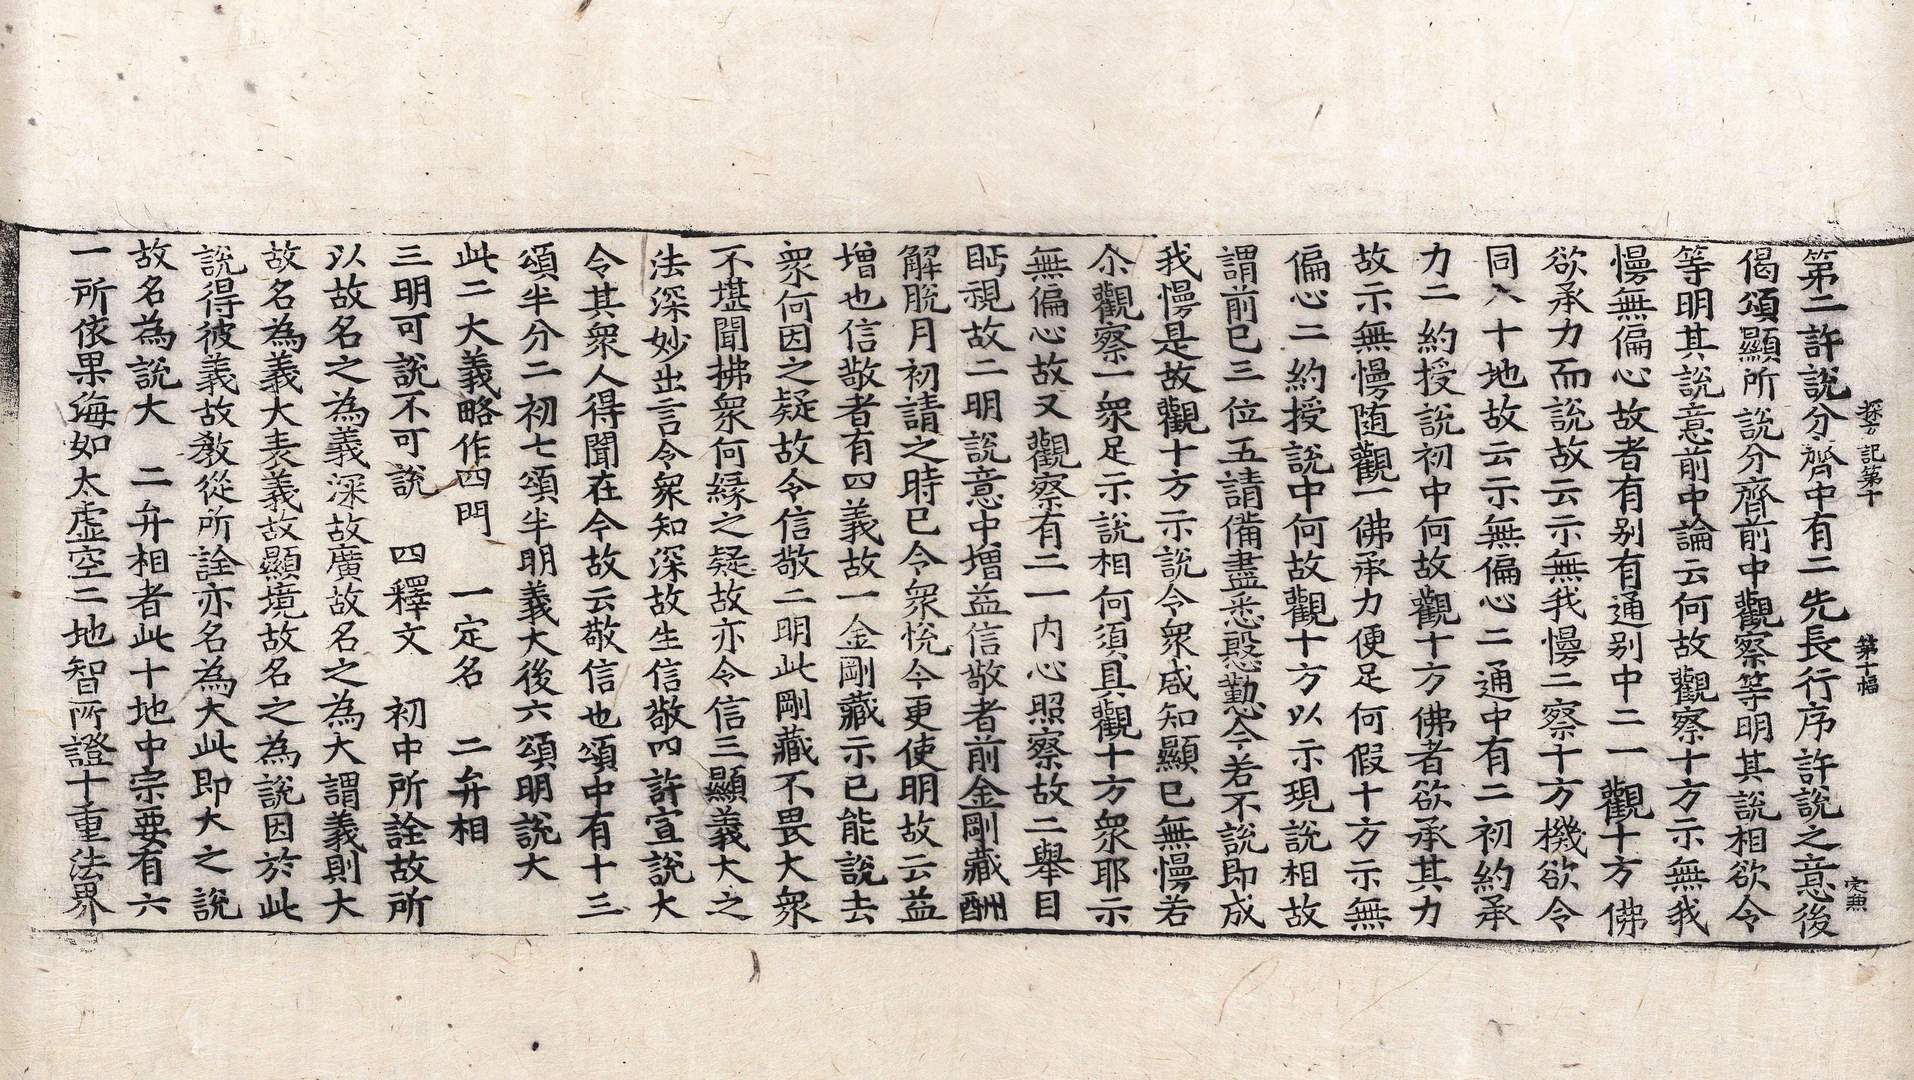 探玄記第十　第十幅　定兼
第二許說分齊中有二先長行序許說之意後
偈頌顯所說分齊前中觀察等明其說相欲令
等明其說意前中論云何故觀察十方示無我
慢無偏心故者有别有通别中二一觀十方佛
欲承力而說故云示無我慢二察十方機欲令
同入十地故云示無偏心二通中有二初約承
力二約授說初中何故觀十方佛者欲承其力
故示無慢随觀一佛承力便足何假十方示無
偏心二約授說中何故觀十方以示現說相故
謂前已三位五請備盡悉慇懃今若不說即成
我慢是故觀十方示說令衆咸知顯已無慢若
尒觀察一衆足示說相何須具觀十方衆耶示
無偏心故又觀察有二一内心照察故二舉目
眄視故二明說意中増益信敬者前金剛藏酬
解脫月初請之時已令衆悅今更使明故云益
増也信敬者有四義故一金剛藏示已能說去
衆何因之疑故令信敬二明此剛藏不畏大衆
不堪聞拂衆何緣之疑故亦令信三顯義大之
法深妙出言令衆知深故生信敬四許宣說大
令其衆人得聞在今故云敬信也頌中有十三
頌半分二初七頌半明義大後六頌明說大
此二大義略作四門　一定名　二弁相
三明可說不可說　四釋文　初中所詮故所
以故名之為義深故廣故名之為大謂義則大
故名為義大表義故顯境故名之為說因於此
說得彼義故教從所詮亦名為大此即大之說
故名為說大　二弁相者此十地中宗要有六
一所依果海如太虛空二地智所證十重法界